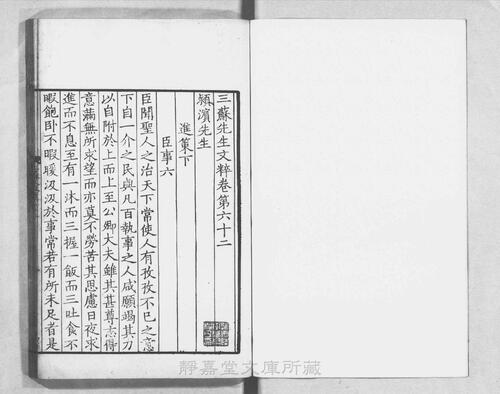 三蘇先生文粹卷第六十二
潁濱先生
進策下
臣事六
臣聞聖人之治天下常使人有孜孜不已之意
下自一介之民與凡百執事之人咸願竭其力
以自附於上而上至公卿大夫雖其甚尊志得
意滿無所求望而亦莫不勞苦其思慮日夜求
進而不息至有一沐而三握一飯而三吐食不
暇飽臥不暇暖汲汲於事常若有所未足者是
靜嘉堂文庫所藏